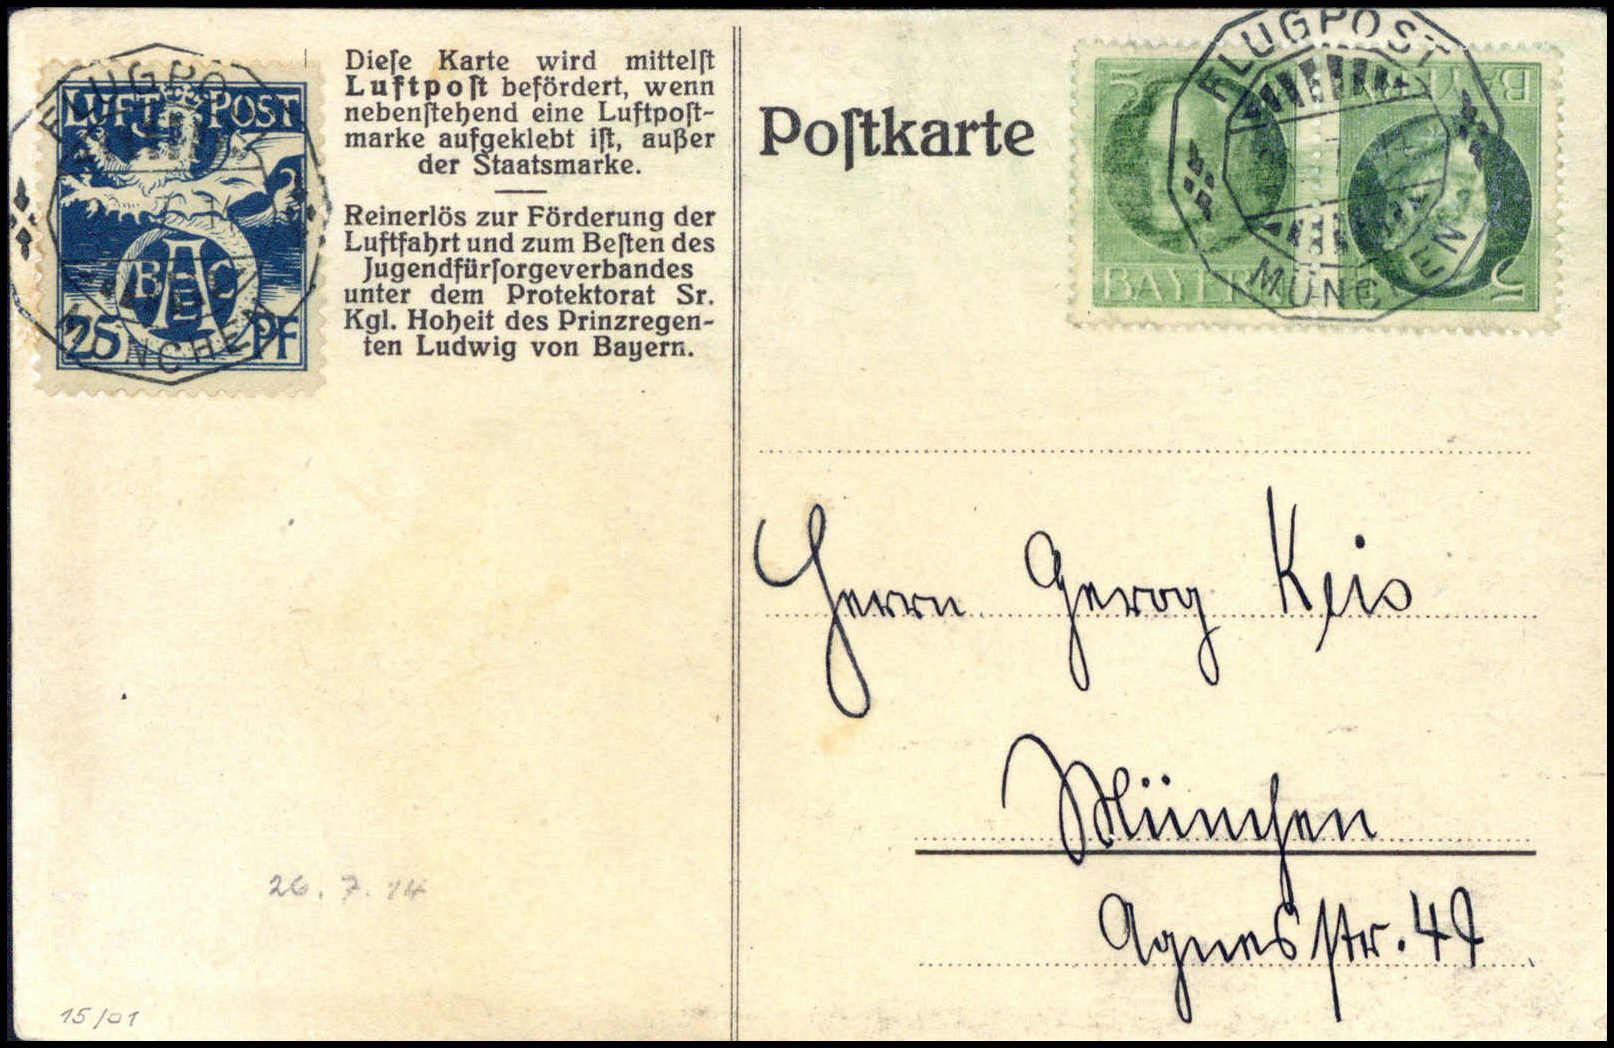 LUFT POST
BAEC
25 PF
FLUGPOST
MÜNCHEN
Dieſe Karte wird mittelſt
Luftpoſt befördert, wenn
nebenſtehend eine Luftpoſt-
marke aufgeklebt iſt, außer
der Staatsmarke.
Reinerlös zur Förderung der
Luftfahrt und zum Beſten des
Jugendfürſorgeverbandes
unter dem Protektorat Sr.
Kgl. Hoheit des Prinzregen-
ten Ludwig von Bayern.
26. 7. 14
15/01
Poſtkarte
5
BAYERN
BAYERN
5
5
FLUGPOST
MÜNCHEN
Herrn Georg
München
Agnesstr. 49